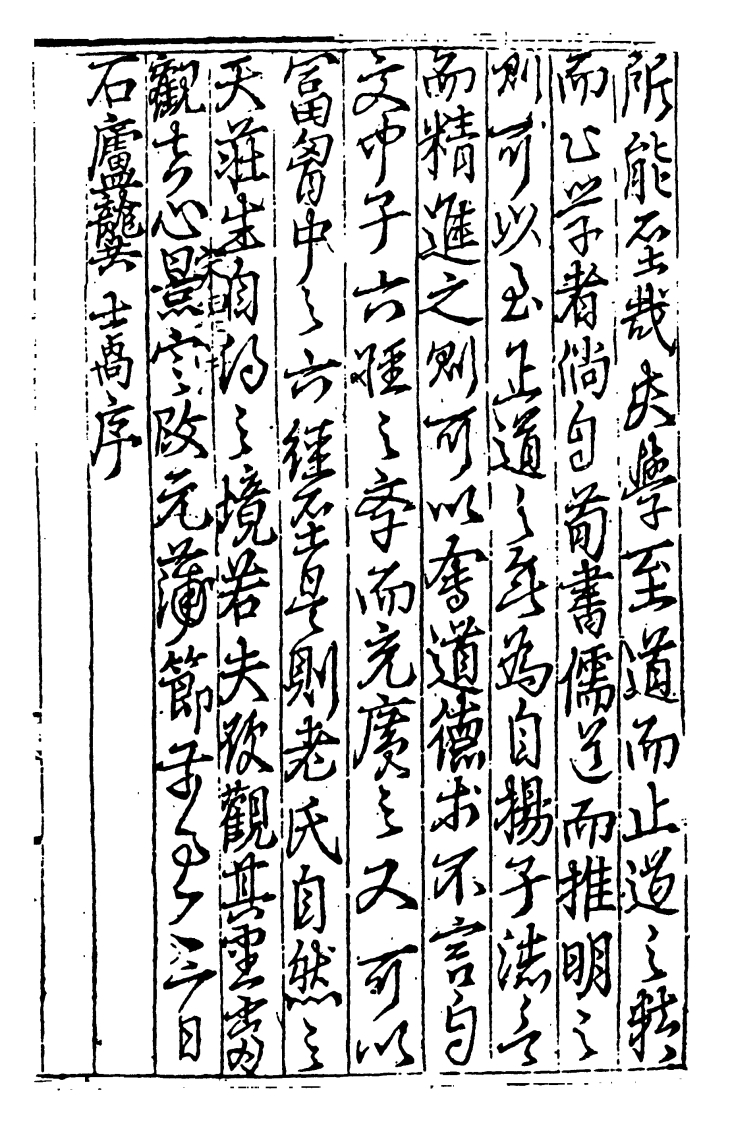 所能哉夫學至道而止道之
而已学者倘自荀書儒道而推明之
則可以至正道之為自揚子法言
而精進之則可以奪道德於不言自
文中子六經之奇而充廣之又可以
富胷中之六經是則老氏自然之
天莊生自得之境若夫欲觀其
觀心景定改元蒲節三日
石廬龔士卨序